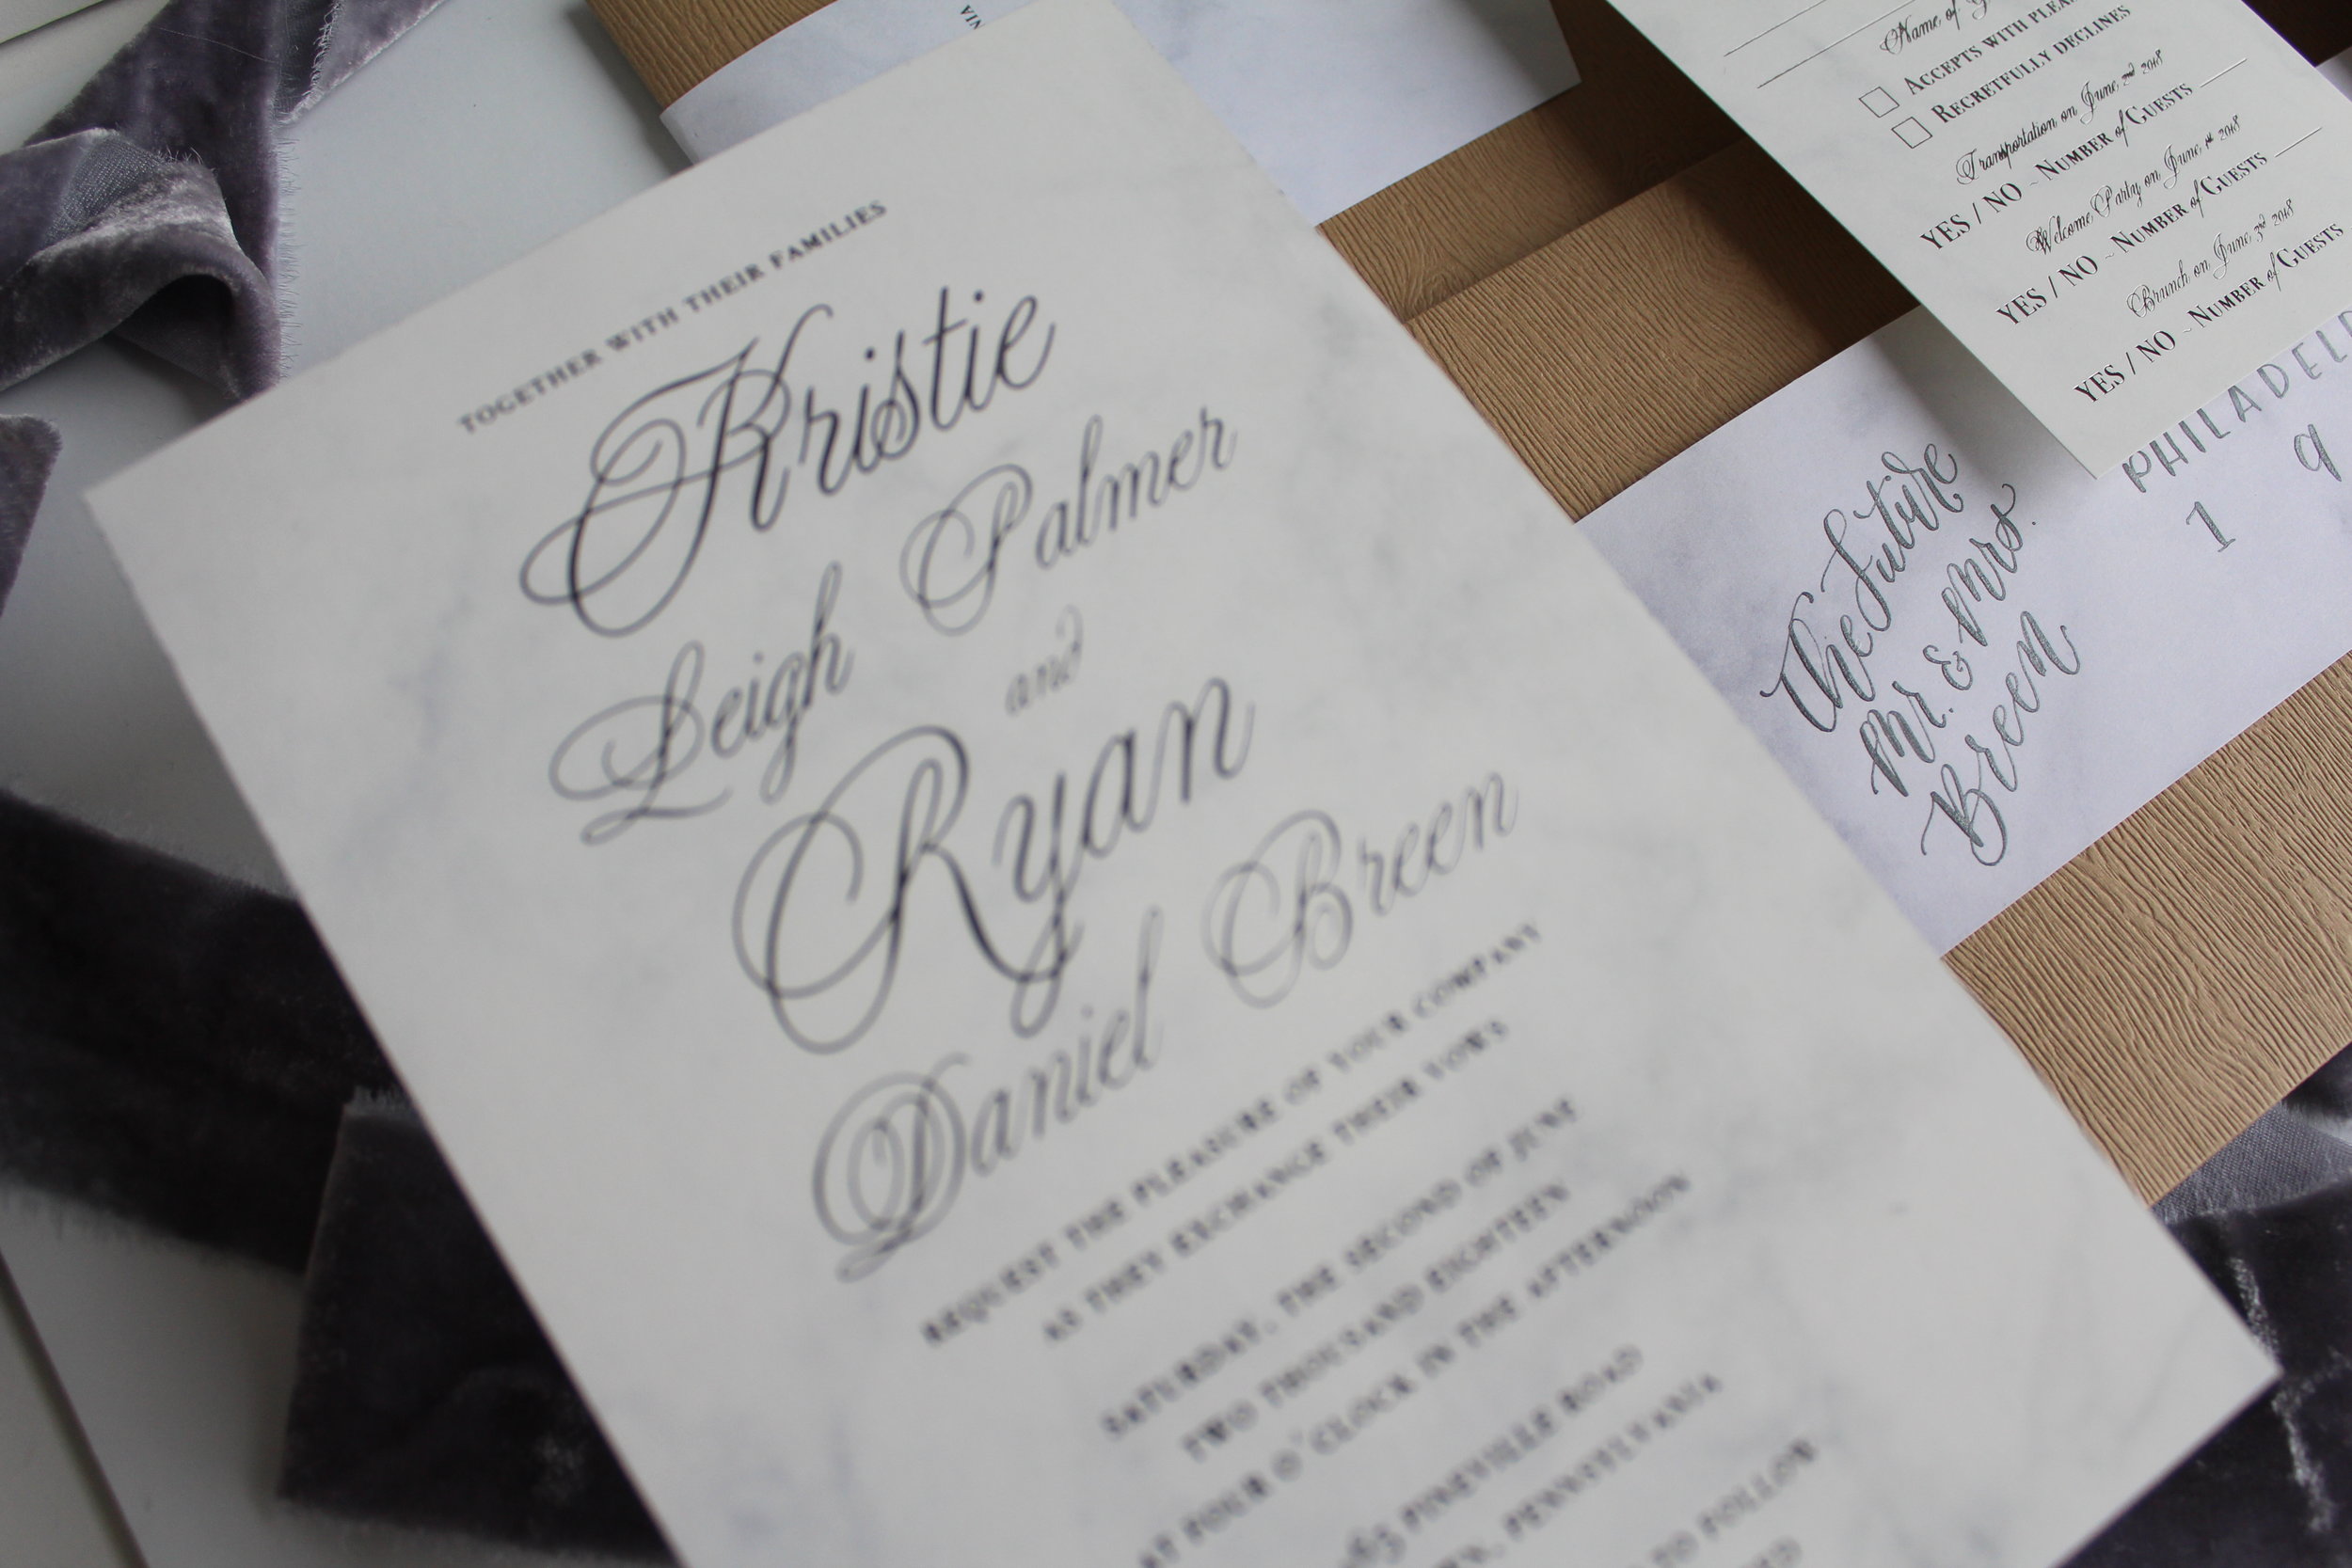 TOGETHER WITH THEIR FAMILIES
Kristie
Leigh Palmer
and
Ryan
Daniel Breen
REQUEST THE PLEASURE OF YOUR COMPANY
AS THEY EXCHANGE THEIR VOWS
SATURDAY, THE SECOND OF JUNE
TWO THOUSAND EIGHTEEN
AT FOUR O'CLOCK IN THE AFTERNOON
PINEVILLE ROAD
PENNSYLVANIA
TO FOLLOW
Name of
ACCEPTS WITH
REGRETFULLY DECLINES
Transportation on June 2nd 2018
YES / NO ~ NUMBER of GUESTS
Welcome Party on June 1st 2018
YES / NO ~ NUMBER of GUESTS
Brunch on June 3rd 2018
YES / NO ~ NUMBER of GUESTS
The Future
Mr. & Mrs.
Breen
PHILADEL
1 9